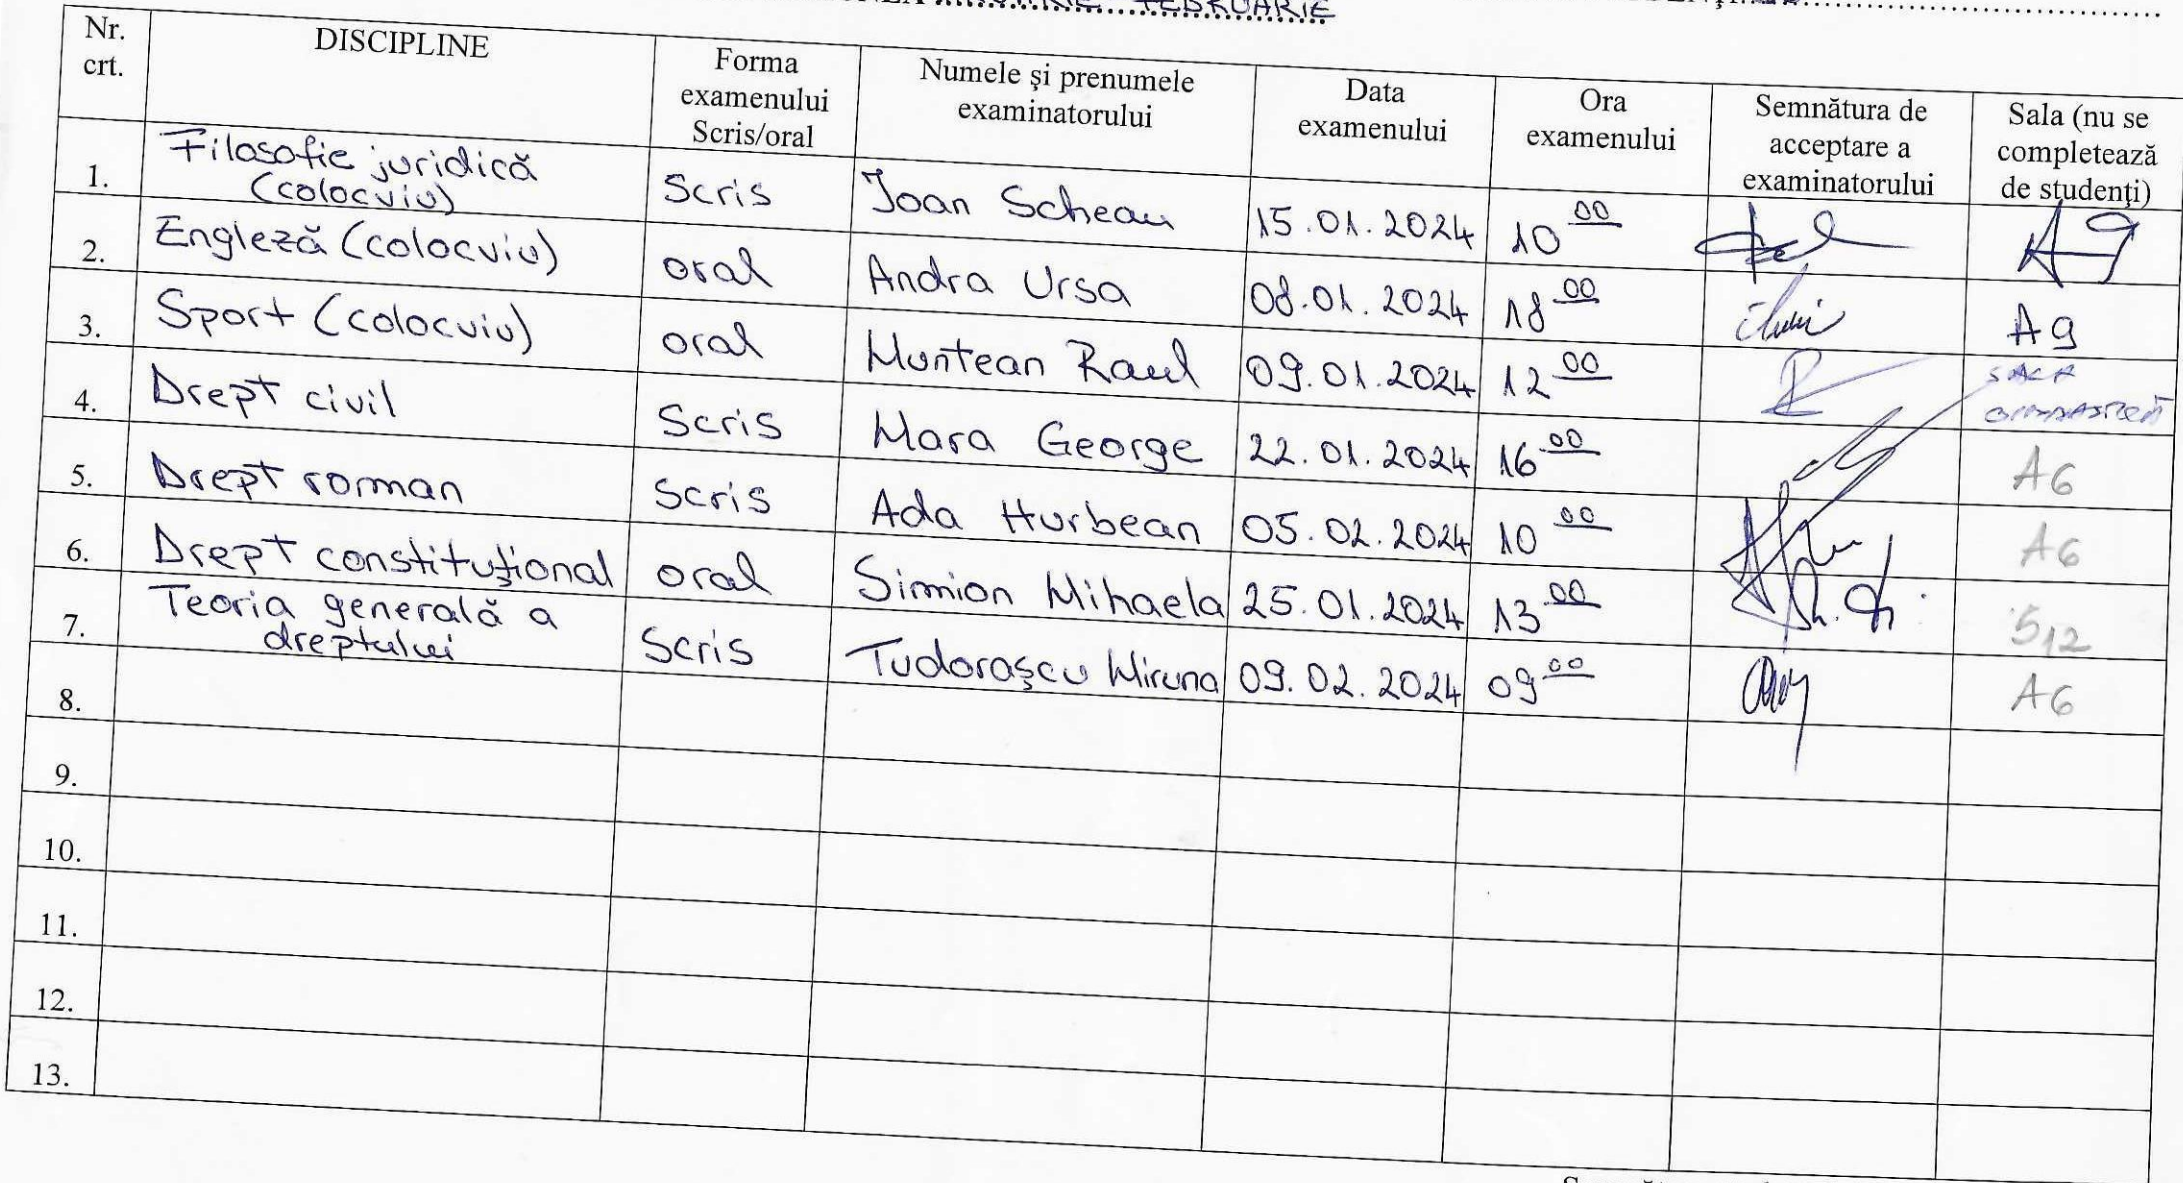 FEBRUARIE
Nr. crt. DISCIPLINE Forma examenului Scris/oral Numele și prenumele examinatorului Data examenului Ora examenului Semnătura de acceptare a examinatorului Sala (nu se completează de studenți)
1. Filosofie juridică (colocviu) Scris Ioan Scheau 15.01.2024 10 00 A9
2. Engleză (colocviu) oral Andra Ursa 08.01.2024 18 00 A9
3. Sport (colocviu) oral Muntean Raul 09.01.2024 12 00
4. Drept civil Scris Mara George 22.01.2024 16 00 A6
5. Drept roman Scris Ada Hurbean 05.02.2024 10 00 A6
6. Drept constituțional oral Simion Mihaela 25.01.2024 13 00 S12
7. Teoria generală a dreptului Scris Tudorașcu Miruna 09.02.2024 09 00 A6
8.
9.
10.
11.
12.
13.